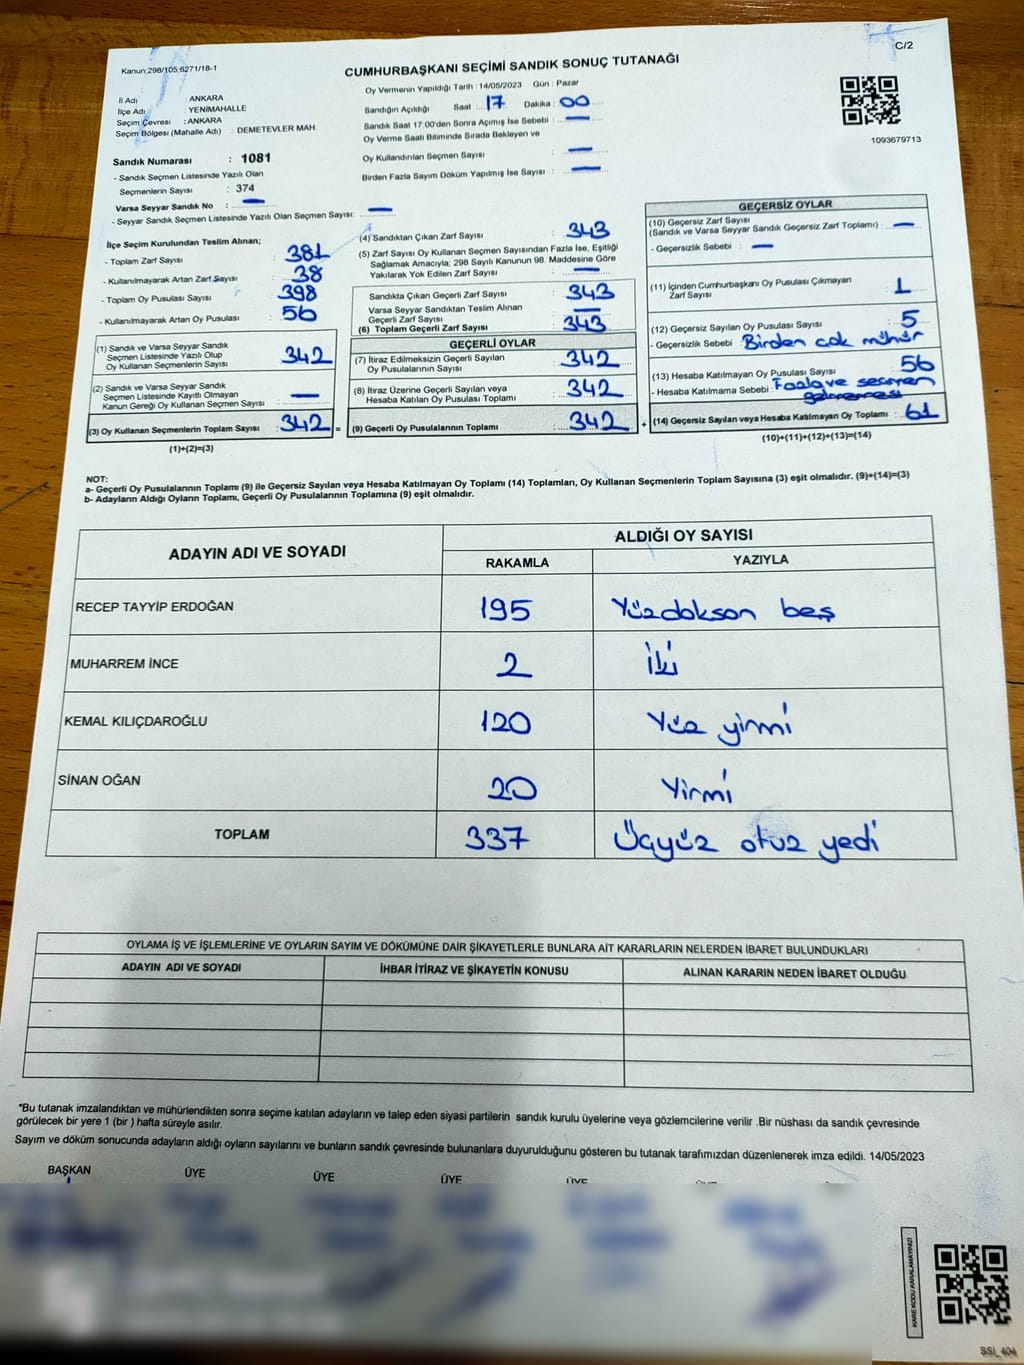 Kanun;298/105;6271/18-1
C/2
CUMHURBAŞKANI SEÇİMİ SANDIK SONUÇ TUTANAĞI
İl Adı : ANKARA
İlçe Adı : YENİMAHALLE
Seçim Çevresi : ANKARA
Seçim Bölgesi (Mahalle Adı) : DEMETEVLER MAH.
Oy Vermenin Yapıldığı Tarih : 14/05/2023 Gün : Pazar
Sandığın Açıldığı Saat : 17 Dakika : 00
Sandık Saat 17:00'den Sonra Açımış İse Sebebi : —
Oy Verme Saati Bitiminde Sırada Bekleyen ve
Oy Kullandırılan Seçmen Sayısı : —
Birden Fazla Sayım Döküm Yapılmış İse Sayısı : —
1093679713
Sandık Numarası : 1081
- Sandık Seçmen Listesinde Yazılı Olan
Seçmenlerin Sayısı : 374
Varsa Seyyar Sandık No : —
- Seyyar Sandık Seçmen Listesinde Yazılı Olan Seçmen Sayısı: —
İlçe Seçim Kurulundan Teslim Alınan;
- Toplam Zarf Sayısı : 381
- Kullanılmayarak Artan Zarf Sayısı : 38
- Toplam Oy Pusulası Sayısı : 398
- Kullanılmayarak Artan Oy Pusulası : 56
(1) Sandık ve Varsa Seyyar Sandık
Seçmen Listesinde Yazılı Olup
Oy Kullanan Seçmenlerin Sayısı : 342
(2) Sandık ve Varsa Seyyar Sandık
Seçmen Listesinde Kayıtlı Olmayan
Kanun Gereği Oy Kullanan Seçmen Sayısı : —
(3) Oy Kullanan Seçmenlerin Toplam Sayısı : 342 =
(1)+(2)=(3)
(4) Sandıktan Çıkan Zarf Sayısı : 343
(5) Zarf Sayısı Oy Kullanan Seçmen Sayısından Fazla İse, Eşitliği
Sağlamak Amacıyla; 298 Sayılı Kanunun 98. Maddesine Göre
Yakılarak Yok Edilen Zarf Sayısı : —
Sandıkta Çıkan Geçerli Zarf Sayısı : 343
Varsa Seyyar Sandıktan Teslim Alınan
Geçerli Zarf Sayısı : —
(6) Toplam Geçerli Zarf Sayısı : 343
GEÇERLİ OYLAR
(7) İtiraz Edilmeksizin Geçerli Sayılan
Oy Pusulalarının Sayısı : 342
(8) İtiraz Üzerine Geçerli Sayılan veya
Hesaba Katılan Oy Pusulası Toplamı : 342
(9) Geçerli Oy Pusulalarının Toplamı : 342 +
GEÇERSİZ OYLAR
(10) Geçersiz Zarf Sayısı
(Sandık ve Varsa Seyyar Sandık Geçersiz Zarf Toplamı) : —
- Geçersizlik Sebebi : —
(11) İçinden Cumhurbaşkanı Oy Pusulası Çıkmayan
Zarf Sayısı : 1
(12) Geçersiz Sayılan Oy Pusulası Sayısı : 5
- Geçersizlik Sebebi : Birden çok mühür
(13) Hesaba Katılmayan Oy Pusulası Sayısı : 56
- Hesaba Katılmama Sebebi : Fazla ve seçmen
gelmemesi
(14) Geçersiz Sayılan veya Hesaba Katılmayan Oy Toplamı : 61
(10)+(11)+(12)+(13)=(14)
NOT:
a- Geçerli Oy Pusulalarının Toplamı (9) ile Geçersiz Sayılan veya Hesaba Katılmayan Oy Toplamı (14) Toplamları, Oy Kullanan Seçmenlerin Toplam Sayısına (3) eşit olmalıdır. (9)+(14)=(3)
b- Adayların Aldığı Oyların Toplamı, Geçerli Oy Pusulalarının Toplamına (9) eşit olmalıdır.
ADAYIN ADI VE SOYADI
ALDIĞI OY SAYISI
RAKAMLA YAZIYLA
RECEP TAYYİP ERDOĞAN 195 Yüzdokson beş
MUHARREM İNCE 2 İki
KEMAL KILIÇDAROĞLU 120 Yüz yirmi
SİNAN OĞAN 20 Yirmi
TOPLAM 337 Üçyüz otuz yedi
OYLAMA İŞ VE İŞLEMLERİNE VE OYLARIN SAYIM VE DÖKÜMÜNE DAİR ŞİKAYETLERLE BUNLARA AİT KARARLARIN NELERDEN İBARET BULUNDUKLARI
ADAYIN ADI VE SOYADI İHBAR İTİRAZ VE ŞİKAYETİN KONUSU ALINAN KARARIN NEDEN İBARET OLDUĞU
*Bu tutanak imzalandıktan ve mühürlendikten sonra seçime katılan adayların ve talep eden siyasi partilerin sandık kurulu üyelerine veya gözlemcilerine verilir .Bir nüshası da sandık çevresinde
görülecek bir yere 1 (bir ) hafta süreyle asılır.
Sayım ve döküm sonucunda adayların aldığı oyların sayılarını ve bunların sandık çevresinde bulunanlara duyurulduğunu gösteren bu tutanak tarafımızdan düzenlenerek imza edildi. 14/05/2023
BAŞKAN ÜYE ÜYE ÜYE ÜYE
KARE KODU KARALAMAYINIZ!
SSI_404